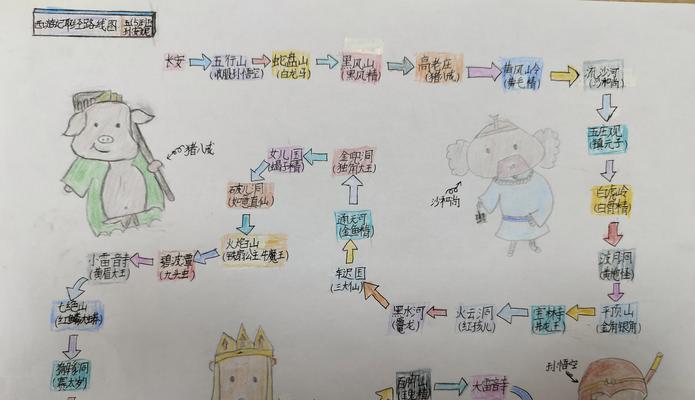 西游记取经路线图
长安
五行山
(收服孙悟空)
蛇盘山
(白龙马)
黑风山
(黑风精)
高老庄
(猪八戒)
黄风岭
(黄毛精)
流沙河
(沙和尚)
五庄观
(镇元子)
白虎岭
(白骨精)
波月洞
(黄袍怪)
平顶山
(金角银角)
火云洞
(红孩儿)
黑水河
(鼍龙)
车迟国
(三大仙)
通天河
(金鱼精)
金兜洞
(独角大王)
女儿国
(蝎子精)
破儿洞
(如意真仙)
火焰山
(铁扇公主 牛魔王)
碧波潭
(九头虫)
小雷音寺
(黄眉大王)
七绝山
(红鳞大蟒)
獬豸洞
(赛太岁)
大雷音寺
猪八戒
沙和尚
孙悟空